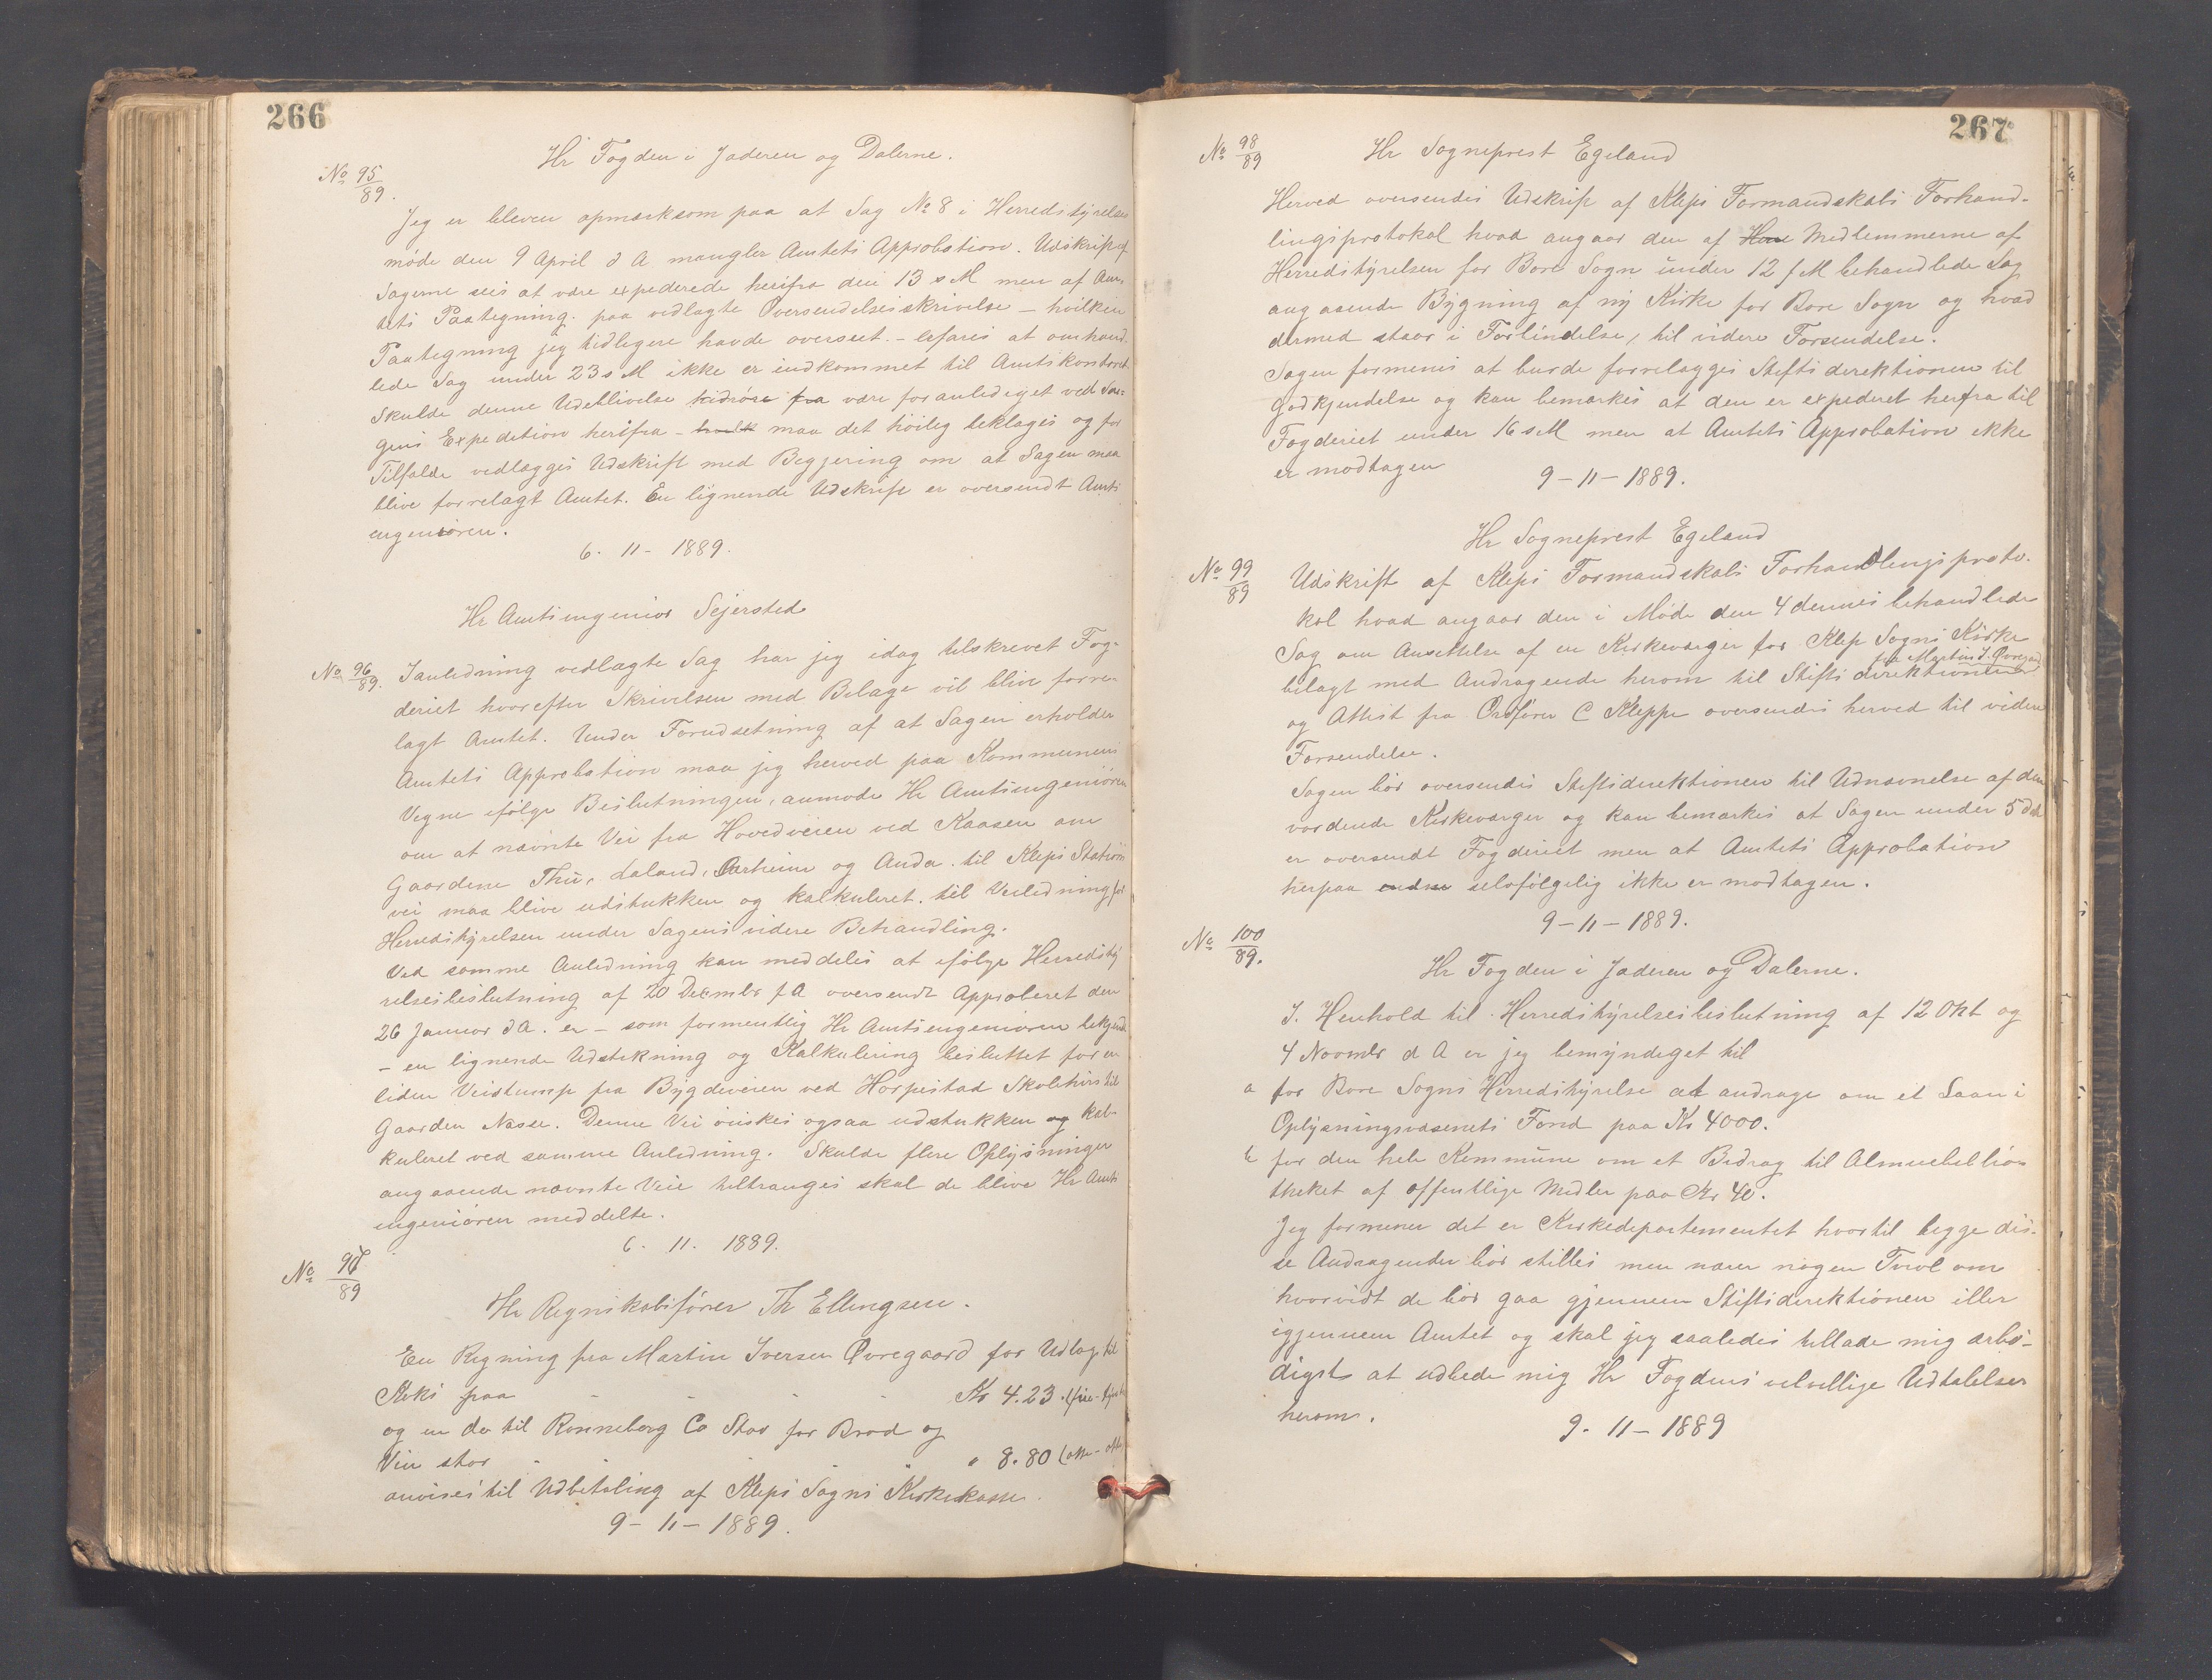 266
Hr Fogden i Jæderen og Dalerne.
No 95/89.
Jeg er bleven opmærksom paa at Sag No 8 i Herredstyrelses
møde den 9 April d A mangler Amtets Approbation. Udskrift af
Sagerne sees at være expederede herifra den 13 s M men af Am-
tets Paategning paa vedlagte Oversendelsesskrivelse – hvilken
Paategning jeg tidligere havde overseet. – erfares at omhand-
lede Sag under 23 s M ikke er indkommet til Amtskontoret
Skulde denne Udeblivelse være foranlediget ved Sa-
gens Expedition herifra – maa det höilig beklages og for
Tilfælde vedlægges Udskrift med Begjæring om at Sagen maa
blive forrelagt Amtet. En lignende Udskrift er oversendt Amts
ingeniøren.
6. 11 - 1889.
Hr Amtsingeniør Sejersted
No 96/89.
I anledning vedlagte Sag har jeg idag tilskrevet Fog-
deriet hvorefter Skrivelsen med Bilage vil blive forre-
lagt Amtet. Under Forudsetning af at Sagen erholder
Amtets Approbation maa jeg herved paa Kommunens
Vegne ifölge Beslutningen, anmode Hr Amtsingeniøren
om at nævnte Vei fra Hovedveien ved Kaasen om
Gaardene Thu, Laland, Aarheim og Anda til Kleps Station
vei maa blive udstukken og kalkuleret til Veiledning for
Herredstyrelsen under Sagens videre Behandling.
Ved samme Anledning kan meddeles at ifölge Herredsty
relsesbeslutning af 20 Decmbr f A oversendt Approberet den
26 Januar d A. er – som formentlig Hr Amtsengeniøren bekjendt
– en lignende Udstikning og Kalkulering besluttet for en
liden Veistump fra Bygdeveien ved Horpestad Skolehus til
Gaarden Næsse. Denne Vei önskes ogsaa udstukken og kal-
kuleret ved samme Anledning. Skulde flere Oplysninger
angaaende nævnte Veie tiltrænges skal de blive Hr Amts
ingeniøren meddelte.
6. 11. 1889.
No 97/89
Hr Regnskabsfører Th Ellingsen.
En Regning fra Martin Iversen Øvregaard for Udlæg til
Keks paa - - - - Kr 4.23
og en do til Ronneborg Co Stav for Brød og
Vin stor - - - - " 8.80
anvises til Udbetaling af Kleps Sogns Kirkekasse.
9 - 11 - 1889.
267
No 98/89
Hr Sogneprest Egeland
Herved oversendes Udskrift af Kleps Formandskabs Forhand-
lingsprotokol hvad angaar den af Medlemmerne af
Herredstyrelsen for Bore Sogn under 12 f M behandlede Sag
angaaende Bygning af ny Kirke for Bore Sogn og hvad
dermed staar i Forbindelse, til videre Forsendelse.
Sagen formenes at burde forrelægges Stiftsdirektionen til
Godkjendelse og kan bemærkes at den er expederet herfra til
Fogderiet under 16 s M men at Amtets Approbation ikke
er modtagen
9 - 11 - 1889.
Hr Sogneprest Egeland
No 99/89
Udskrift af Kleps Formandskabs Forhandlingsproto-
kol hvad angaar den i Møde den 4 dennes behandlede
Sag om Ansettelse af en Kirkeværger for Klep Sogns Kirke
fra Martin I. Øvregaard
bilagt med Andragende herom til Stiftsdirektionen
og Attest fra Ordfører C Kleppe oversendes herved til videre
Forsendelse.
Sagen bör oversendes Stiftsdirektionen til Udnævnelse af den
vordende Kirkeværger og kan bemærkes at Sagen under 5 ds
er oversendt Fogderiet men at Amtets Approbation
herpaa selvfölgelig ikke er modtagen.
9 - 11 - 1889.
No 100/89.
Hr Fogden i Jæderen og Dalerne.
I. Henhold til Herredstyrelsesbeslutning af 12 Okt og
4 Novmbr d A er jeg bemyndiget til
a for Bore Sogns Herredstyrelse at andrage om et Laan i
Oplysningsvæsenets Fond paa Kr 4000.
b for den hele Kommune om et Bidrag til Almuebiblio-
theket af offentlige Midler paa Kr 40.
Jeg formener det er Kirkedepartementet hvortil begge dis-
se Andragender bör stilles men nærer nogen Tvivl om
hvorvidt de bör gaa gjennem Stiftsdirektionen eller
igjennem Amtet og skal jeg saaledes tillade mig ærbö-
digst at udbede mig Hr Fogdens velvillige Udtalelser
herom.
9. 11 - 1889